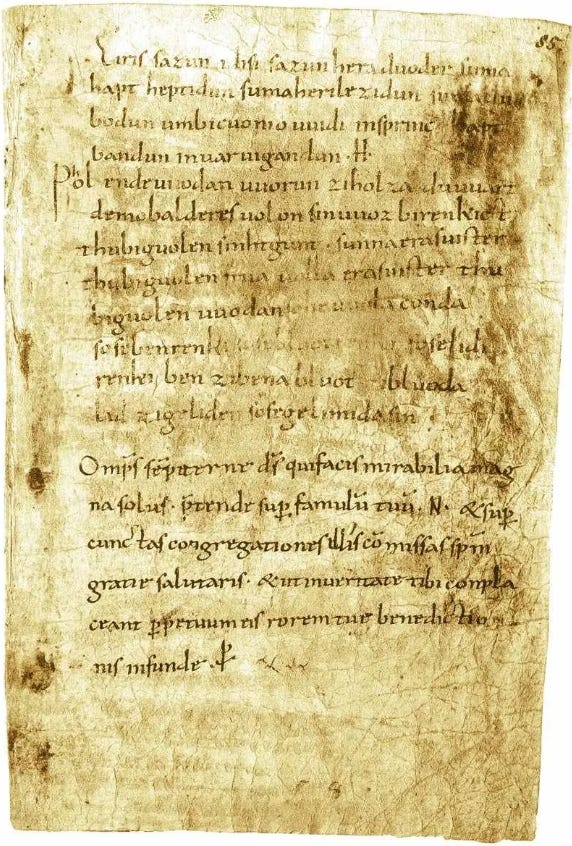 85
Eiris sazun idisi sazun hera duoder suma
hapt heptidun sumaherilezidun
bodun umbicuonio uuidi insprinc hapt
bandun inuar uigandun · H ·
Phol endeuuodan uuorun ziholza duuuart
demobalderesuolon sinuuoz birenkict
thubiguolen sinhtgunt · sunnaerasuister
thubiguolen friia uolla erasuister thu
biguolen uuodan uuolaconda
sosebenrenki soselidi
renki ben zibena bluot zibluoda
lid zigeliden sosegelimidasin
Omp̄s sēpiterne ds̄ quifacis mirabilia mag
na solus · p̄tende sup̱ famulū tuū · N · & sup̱
cunctas congregationes illis cōmissas spm̄
gratie salutaris · & ut inueritate tibi compla
ceant p̱petuum eis rorem tue benedictio
nis infunde · P